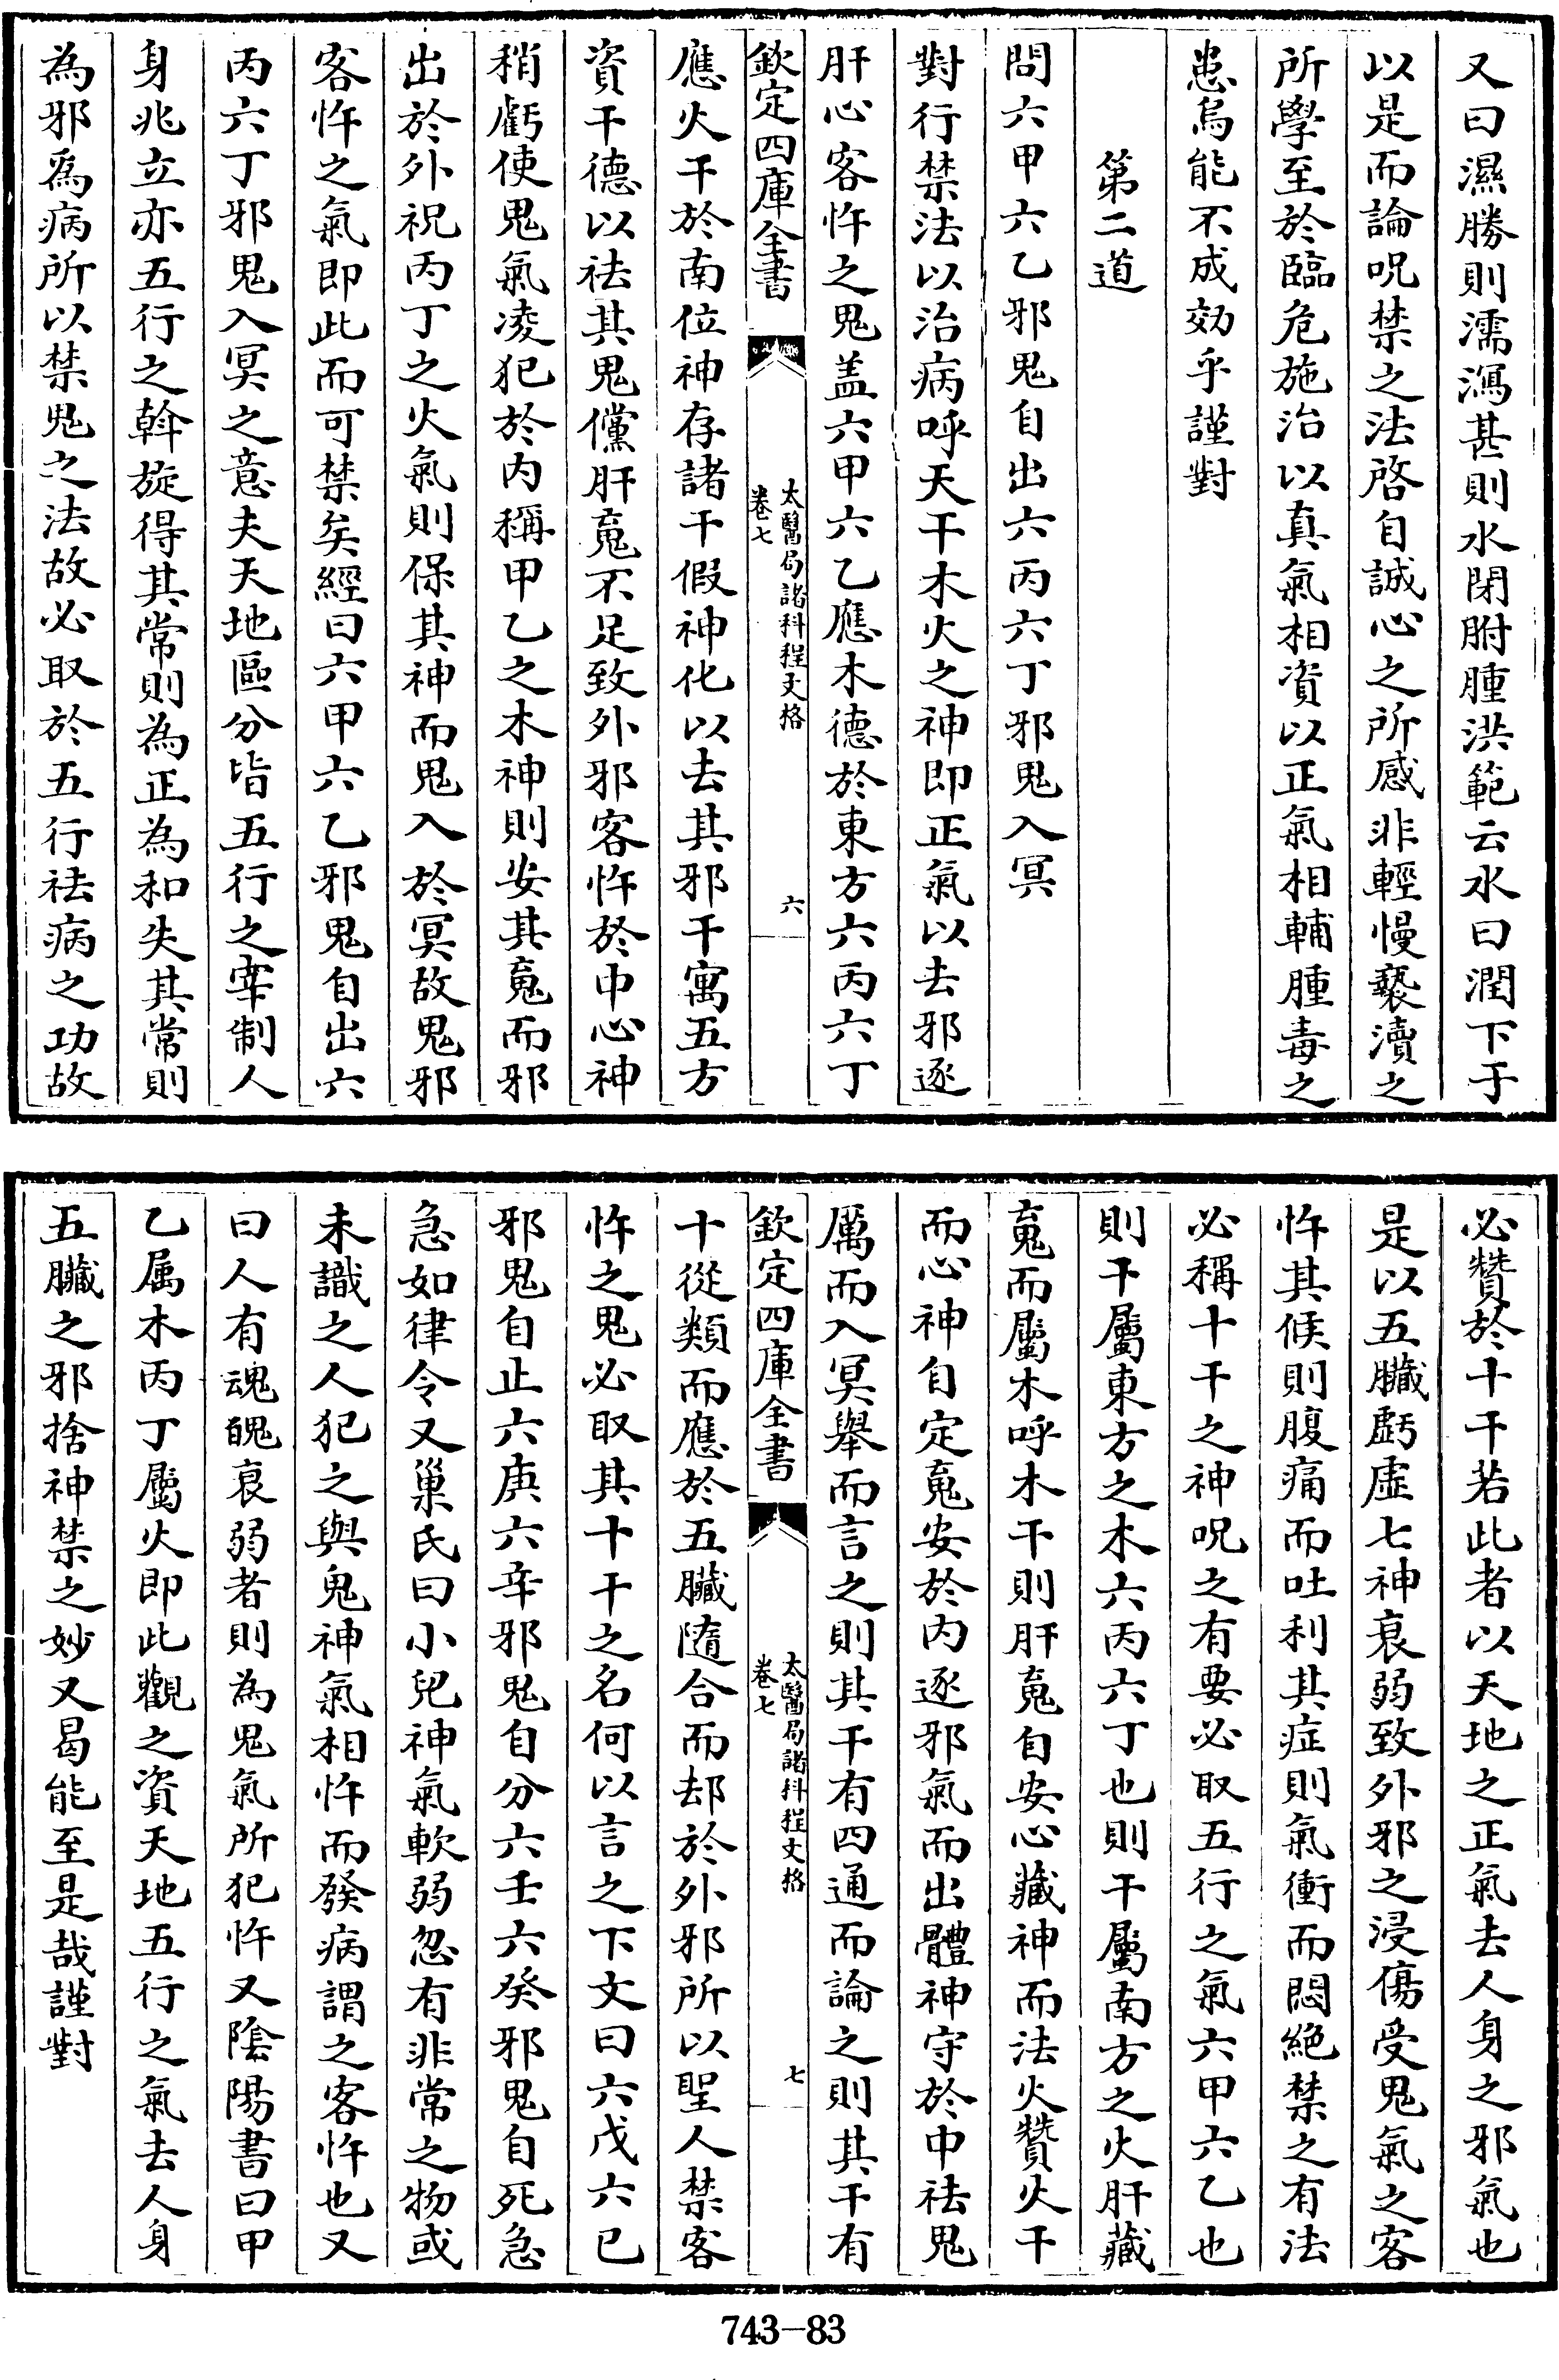 又曰濕勝則濡瀉甚則水閉胕腫洪範云水曰潤下于
以是而論呪禁之法啓自誠心之所感非輕慢褻瀆之
所學至於臨危施治以真氣相資以正氣相輔腫毒之
患烏能不成効乎謹對
第二道
問六甲六乙邪鬼自出六丙六丁邪鬼入冥
對行禁法以治病呼天干木火之神即正氣以去邪逐
肝心客忤之鬼盖六甲六乙應木德於東方六丙六丁
欽定四庫全書
太醫局諸科程文格
卷七
六
應火干於南位神存諸干假神化以去其邪干寓五方
資干德以祛其鬼儻肝䰟不足致外邪客忤於中心神
稍虧使鬼氣凌犯於内稱甲乙之木神則安其䰟而邪
出於外祝丙丁之火氣則保其神而鬼入於冥故鬼邪
客忤之氣即此而可禁矣經曰六甲六乙邪鬼自出六
丙六丁邪鬼入冥之意夫天地區分皆五行之宰制人
身兆立亦五行之斡旋得其常則為正為和失其常則
為邪爲病所以禁鬼之法故必取於五行祛病之功故
必贊於十干若此者以天地之正氣去人身之邪氣也
是以五臟虧虛七神衰弱致外邪之浸傷受鬼氣之客
忤其候則腹痛而吐利其症則氣衝而悶絕禁之有法
必稱十干之神呪之有要必取五行之氣六甲六乙也
則干屬東方之木六丙六丁也則干屬南方之火肝藏
䰟而屬木呼木干則肝䰟自安心藏神而法火贊火干
而心神自定䰟安於内逐邪氣而出體神守於中祛鬼
厲而入冥舉而言之則其干有四通而論之則其干有
欽定四庫全書
太醫局諸科程文格
卷七
七
十從類而應於五臟隨合而却於外邪所以聖人禁客
忤之鬼必取其十干之名何以言之下文曰六戊六已
邪鬼自止六庚六辛邪鬼自分六壬六癸邪鬼自死急
急如律令又巢氏曰小兒神氣軟弱忽有非常之物或
未識之人犯之與鬼神氣相忤而發病謂之客忤也又
曰人有魂魄衰弱者則為鬼氣所犯忤又陰陽書曰甲
乙属木丙丁屬火即此觀之資天地五行之氣去人身
五臟之邪捨神禁之妙又曷能至是哉謹對
743-83